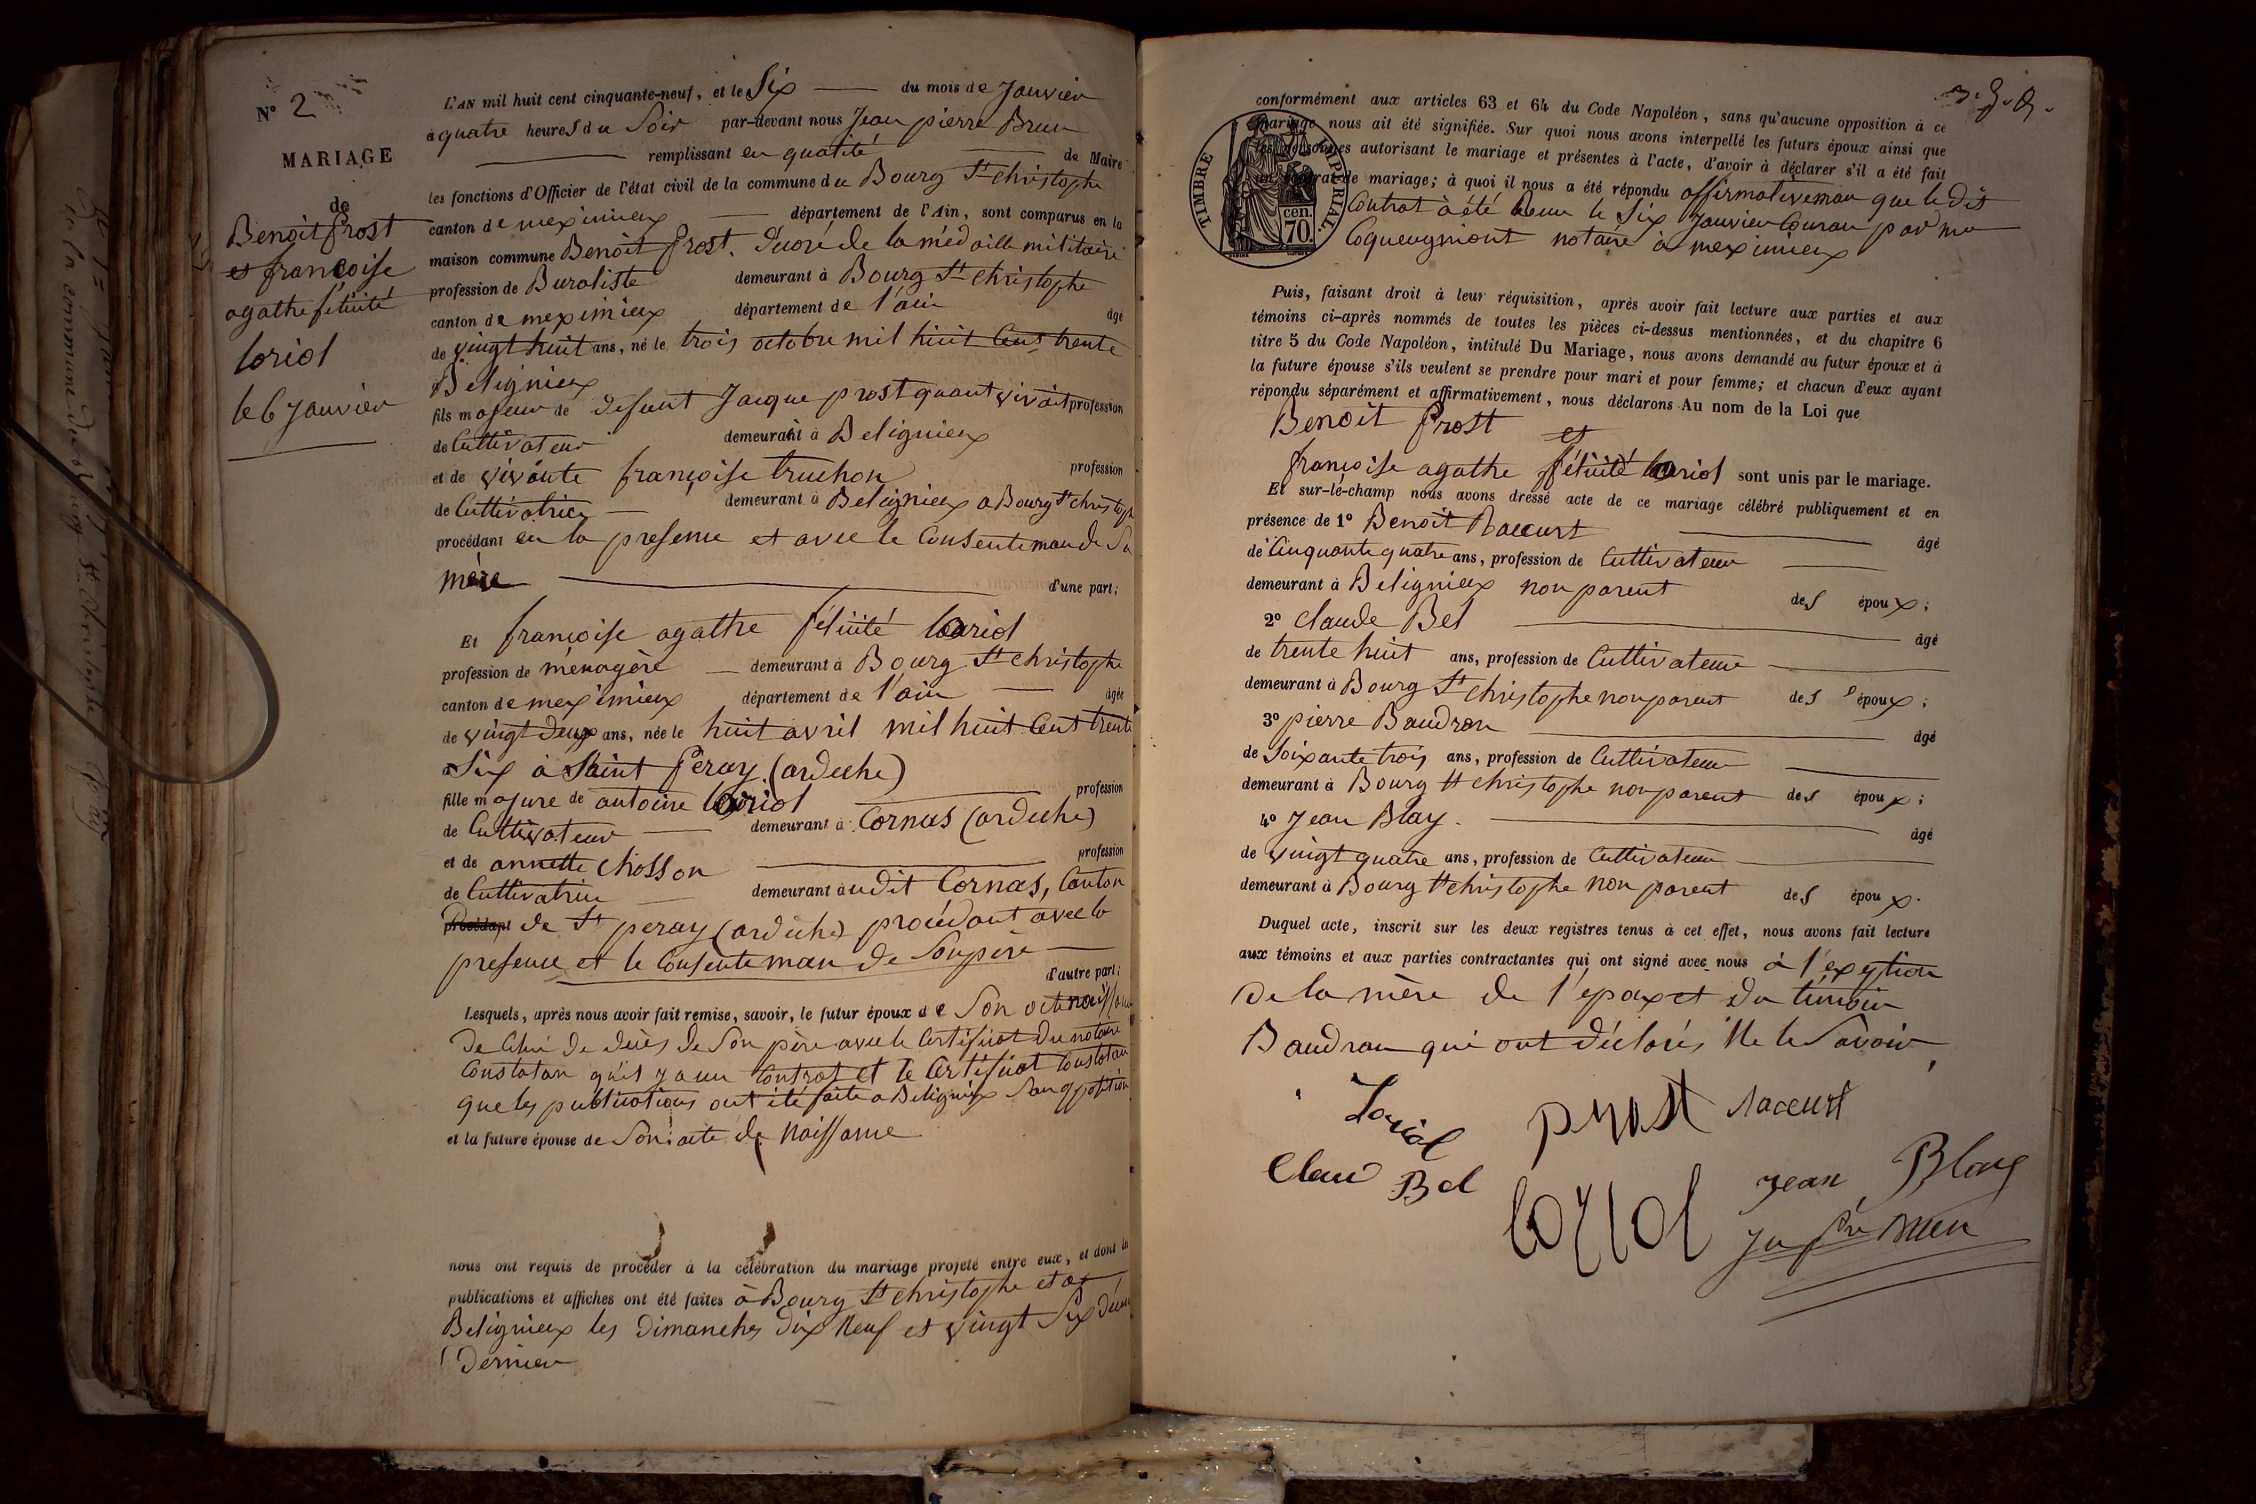 N° 2
MARIAGE
de
Benoit Prost
et françoise
agathe félicité
loriol
le 6 Janvier
L'AN mil huit cent cinquante-neuf, et le Six du mois de Janvier
à quatre heures du Soir par-devant nous Jean pierre Brun
remplissant en qualité de Maire
les fonctions d'Officier de l'état civil de la commune du Bourg St christophe
canton de meximieux département de l'Ain, sont comparus en la
maison commune Benoit Prost. Décoré de la médaille militaire
profession de Buraliste demeurant à Bourg St christophe
canton de meximieux département de l'ain âgé
de vingt huit ans, né le trois octobre mil huit Cent trente
Belignieux
fils majeur de defunt Jacque prost quant vivait profession
de Cultivateur demeurant à Belignieux
et de vivante françoise truchon profession
de Cultivatrice demeurant à Belignieux a Bourg St christoph
procédant en la presence et avec le Consenteman de Sa
mère d'une part;
Et françoise agathe félicité loriol
profession de ménagère demeurant à Bourg St christophe
canton de meximieux département de l'ain âgée
de vingt deux ans, née le huit avril mil huit Cent trente
Six à Saint Peray (ardeche)
fille majure de antoine loriol profession
de Cultivateur demeurant à Cornas (ardeche)
et de annette Chosson profession
de Cultivatrice demeurant à udit Cornas, Canton
procédant de St peray (ardeche) procédant avec la
presence et le Consenteman de Son père
d'autre part;
Lesquels, après nous avoir fait remise, savoir, le futur époux de Son acte naissance
De Celui de decès de Son père avec le Certificat Du notaire
Constatan qu'il y a un Contrat et le Certificat Constatan
que les publications ont été faite a Belignieux San opposition
et la future épouse de Son acte de Naissance
nous ont requis de procéder à la célébration du mariage projeté entre eux, et dont la
publications et affiches ont été faites à Bourg St christophe et a
Belignieux les Dimanches Dix Neuf et vingt Six
Dernier
conformément aux articles 63 et 64 du Code Napoléon, sans qu'aucune opposition à ce
mariage nous ait été signifiée. Sur quoi nous avons interpellé les futurs époux ainsi que
les personnes autorisant le mariage et présentes à l'acte, d'avoir à déclarer s'il a été fait
un contrat de mariage; à quoi il nous a été répondu affirmativeman que le dit
TIMBRE IMPÉRIAL.
70 cen.
Contrat à été Recu le Six Janvier Couran par me
Coqueugniont notaire à meximieux
Puis, faisant droit à leur réquisition, après avoir fait lecture aux parties et aux
témoins ci-après nommés de toutes les pièces ci-dessus mentionnées, et du chapitre 6
titre 5 du Code Napoléon, intitulé Du Mariage, nous avons demandé au futur époux et à
la future épouse s'ils veulent se prendre pour mari et pour femme; et chacun d'eux ayant
répondu séparément et affirmativement, nous déclarons Au nom de la Loi que
Benoit Prost
et
françoise agathe félicité loriol sont unis par le mariage.
Et sur-le-champ nous avons dressé acte de ce mariage célébré publiquement et en
présence de 1° Benoit Raccurt âgé
de Cinquante quatre ans, profession de Cultivateur
demeurant à Belignieux non parent des époux;
2° Claude Bel âgé
de trente huit ans, profession de Cultivateur
demeurant à Bourg St christophe non parent des époux;
3° pierre Baudran âgé
de Soixante trois ans, profession de Cultivateur
demeurant à Bourg St christophe non parent des époux;
4° Jean Blay. âgé
de vingt quatre ans, profession de Cultivateur
demeurant à Bourg St christophe non parent des époux.
Duquel acte, inscrit sur les deux registres tenus à cet effet, nous avons fait lecture
aux témoins et aux parties contractantes qui ont signé avec nous à l'exeption
De la mère de l'epox et du témoin
Baudran qui ont déclarés Ne le Savoir
Loriol prost Raccurt
Claud Bel loriol Jean Blay
Jn Pre Brun